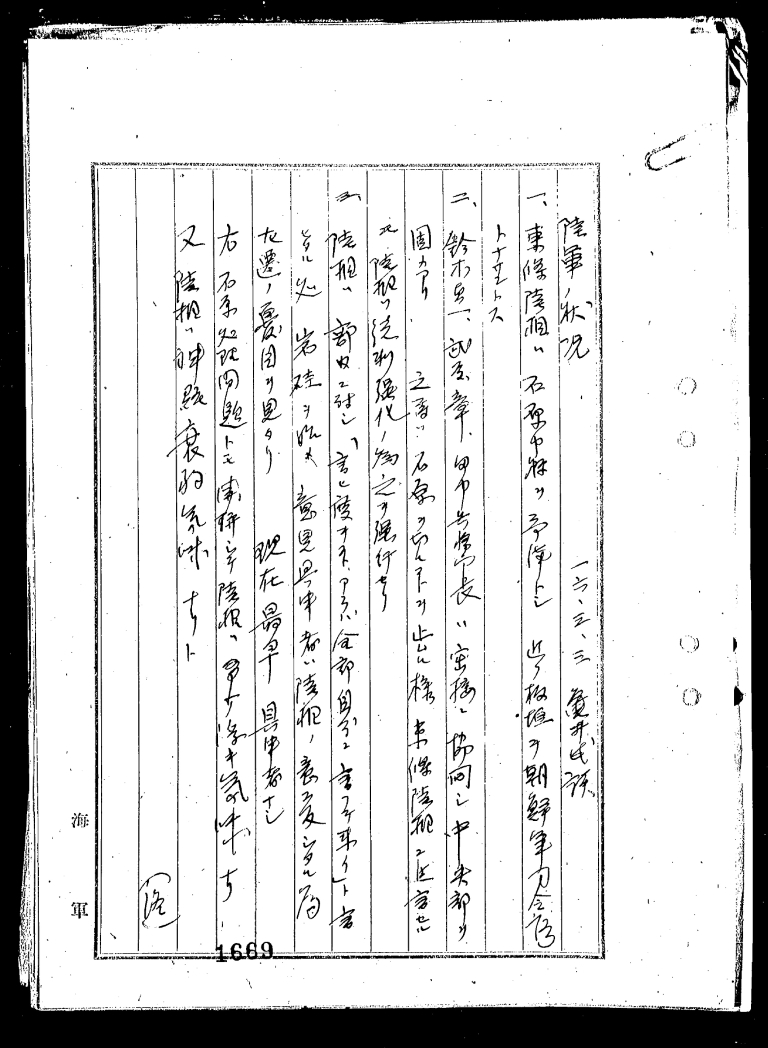 陸軍ノ状況
一六、三、三 亀井氏談
一、東條陸相ハ石原中将ヲ予備トシ 近ク板垣ヲ朝鮮軍司令官
トナサントス
二、鈴木貞一、武藤章、田中兵務局長ハ密接ニ協同シ中央部ヲ
固カタリ 之等ハ石原ヲ切ルコトヲ止ル様東條陸相ニ進言セル
モ陸相ハ統制強化ノ為之ヲ強行セリ
三、陸相ハ部内ニ対シ「言ヒ度キコトアラバ全部自分ニ言フテ来イ」ト言
ヒタル処 岩畔ヲ始メ意見具申者ハ陸相ノ意ニ反シタル為
左遷ノ憂目ヲ見タリ 現在最早具申者ナシ
右石原処理問題トモ関聯シテ陸相ハ 浮キ気味ナリ
又陸相ハ神経衰弱気味ナリト
(終)
海軍
1669